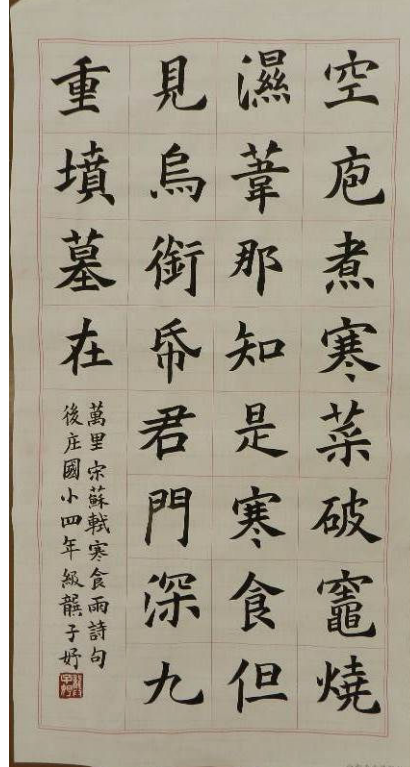 空庖煮寒菜破竈燒
濕葦那知是寒食但
見烏銜帋君門深九
重墳墓在
萬里 宋蘇軾寒食雨詩句
後庄國小四年級龔子妤